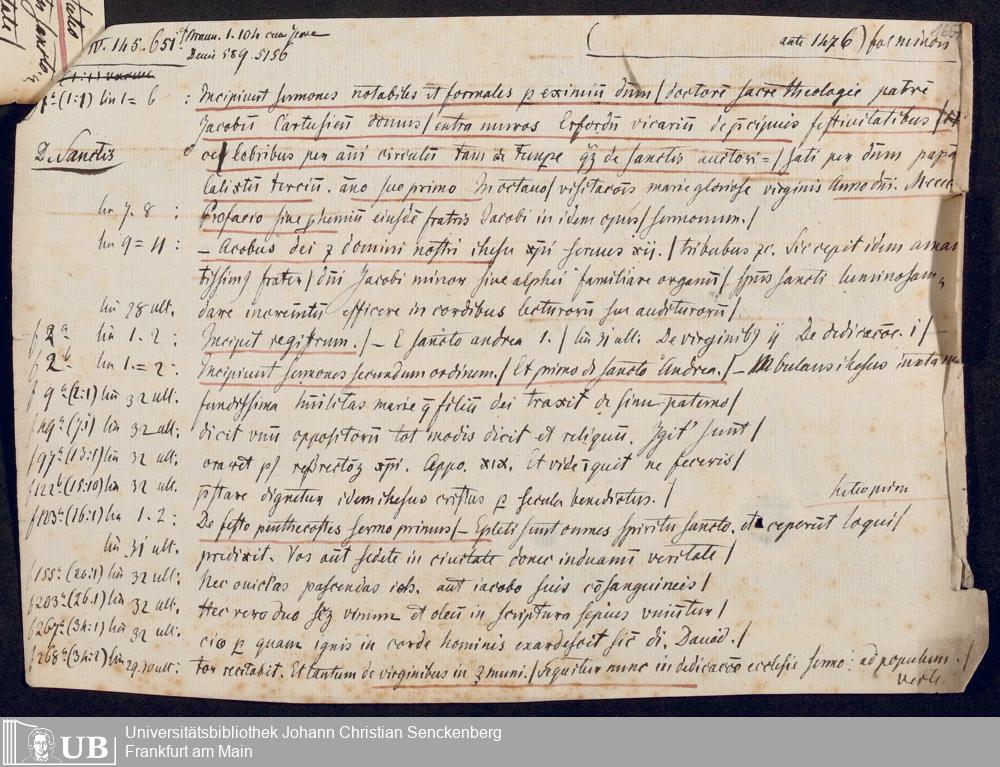 IV. 145. 651
Braun. 1. 104 cum
Denis 589. 5156
( ante 1476) fol minori
f 1ª (1:1) lin 1= 6 : Incipiunt sermones notabiles et formales p eximiū dnm / doctorē sacre theologie patrē
Jacobū Cartusieñ domus / extra muros Erfordñ vicariū de p̄cipuis festiuitatibus /
De Sanctis
lebribus per añi circulū tam de tempe qz de sanctis auctori= / sati per dnm papā
calixtū terciū. āno suo primo In octaua / visitacōis marie gloriose virginis Anno dni. Mcccc
lin 7. 8 : Prefacio siue phemiū eiusdē fratris Jacobi in idem opus / sermonum. /
lin 9 = 11 : – Acobus dei z domini nostri ihesu xpi seruus xij. / tribubus zc. Sic cepit idem aman
tissimq frater / dñi Jacobi minor siue alphei familiare organū / spūs sancti luminosam,
lin 28 ult. dare incremītū efficere in cordibus lectorum siue auditorum /
f 2ª lin 1. 2 : Incipit registrum. / – E sancto andrea 1. / lin 31 ult. De virginibq ij De dedicacōe. i / –
f 2b lin 1.= 2 : Incipiunt sermones secundum ordinem. / Et primo de sancto Andrea. / – Mbulans ihesus iuxta
f 9ª (2:1) lin 32 ult. fundissima hūilitas marie q filiū dei traxit de sinu paterno /
f 49ª (7:1) lin 32 ult. dicit vnū oppositorū tot modis dicit et reliquū. Igit sunt /
f 97ª (13:1) lin 32 ult. xpi. Appo. xix. Et vide īquit ne feceris /
f 122b (15:10) lin 32 ult. p̄stare dignetur idem ihesus cristus p secula benedictus. /
f 123ª (16:1) lin 1. 2 : De festo penthecostes sermo primus / – Epleti sunt omnes spiritu sancto. et ceperūt loqui /
lin 31 ult. predixit. Vos aūt sedete in ciuitate donec induami veritate /
f 155ª (20:1) lin 32 ult: Nec ouiclas pascendas ioh. aut iacobo suis cōsanguineis /
f 203ª (26.1) lin 32 ult. Hec vero duo scz vinum et oleū in scriptura sepius vniūtur /
f 267ª (34:1) lin 32 ult. cio p quam ignis in corde hominis exardescit sic di. Dauid. /
f 268ª (34:2) lin 29.30 ult: tor recitabit. Et tantum de virginibus in muni. / Sequitur nunc in dedicacōe ecclesie sermo: ad populum. /
verte
Universitätsbibliothek Johann Christian Senckenberg
Frankfurt am Main
UB